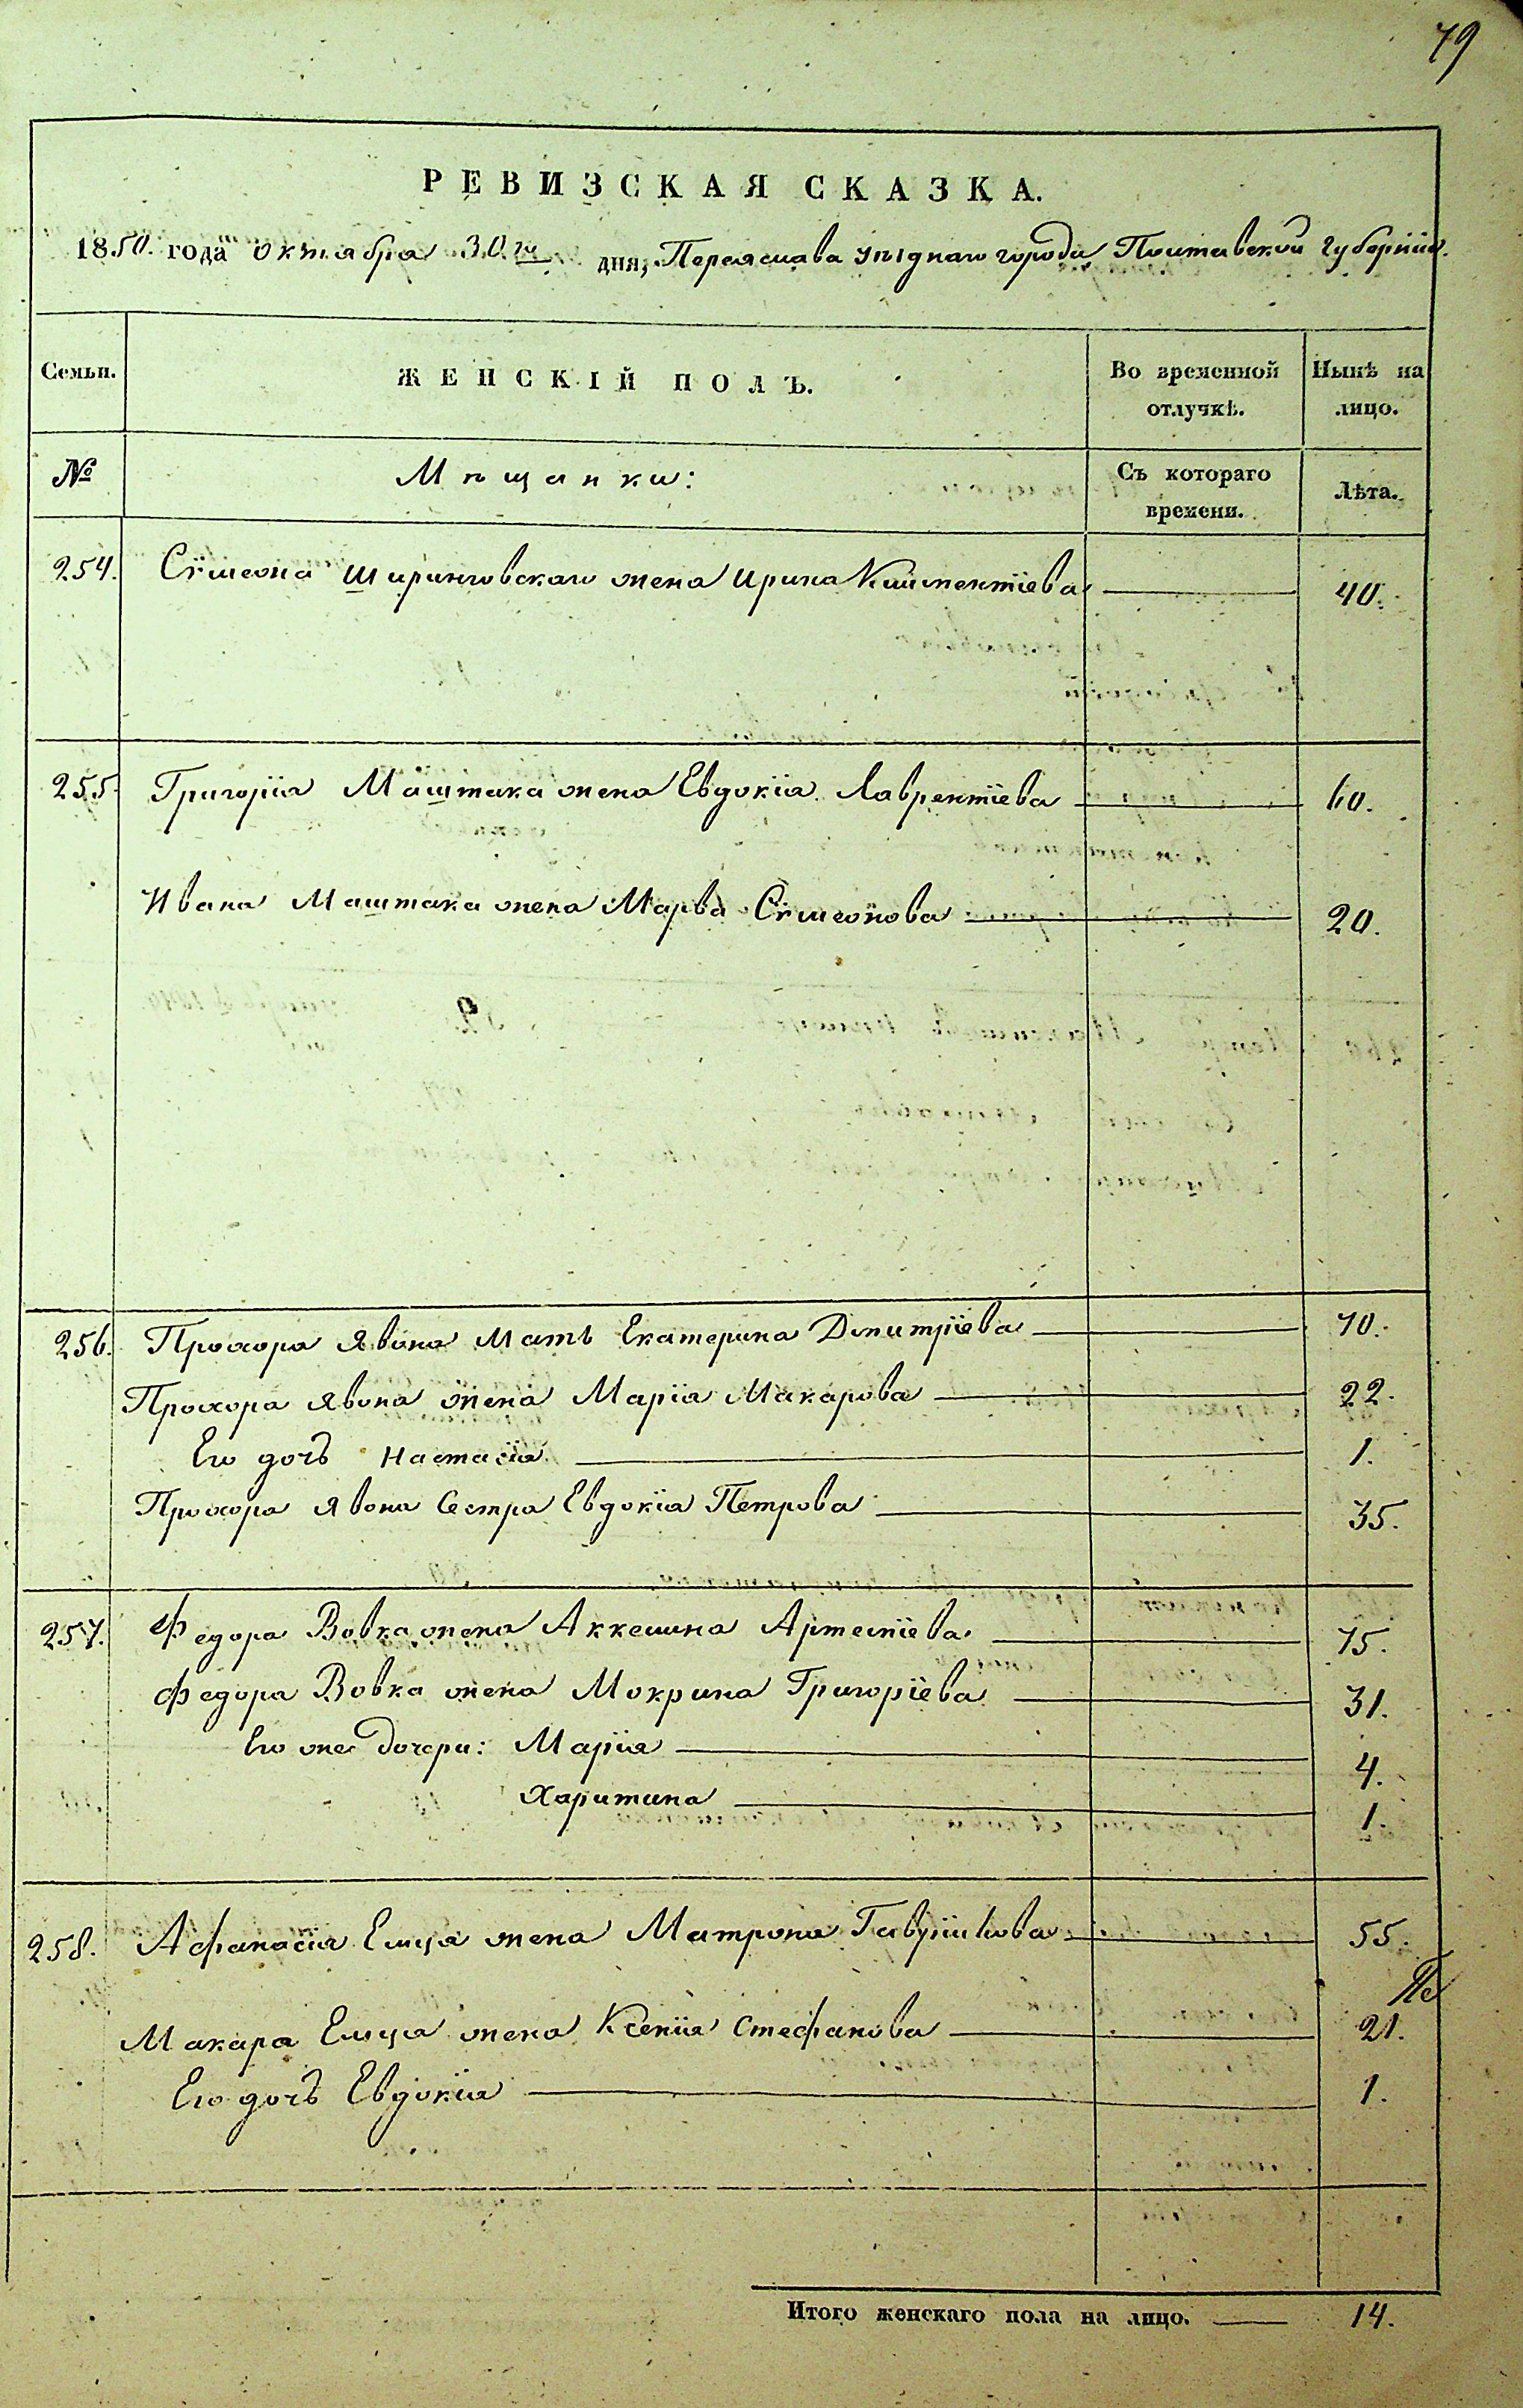 79
РЕВИЗСКАЯ СКАЗКА.
1850. года октября 30го дня, Переяслава уѣзднаго города Полтавской губерніи.
Семьи. ЖЕНСКІЙ ПОЛЪ. Во временной отлучкѣ. Нынѣ на лицо.
№ Мѣщанки: Съ котораго времени. Лѣта.
254. Сѵмеона жена Ирина Климентіева 40.
255. Григорія Маштака жена Евдокія Лаврентіева 60.
Ивана Маштака жена Марѳа Сѵмеонова 20.
256. Прохора Явона мать Екатерина Дмитріева 70.
Прохора Явона жена Марія Макарова 22.
Его дочь Настасія 1.
Прохора Явона сестра Евдокія Петрова 35.
257. Федора Вовка жена Артеміева 75.
Федора Вовка жена Мокрина Григоріева 31.
Его же дочери: Марія 4.
Харитина 1.
258. Афанасія Емца жена Матрона Гавріилова 55.
Макара Емца жена Ксенія Стефанова 21.
Его дочь Евдокія 1.
Итого женскаго пола на лицо. 14.